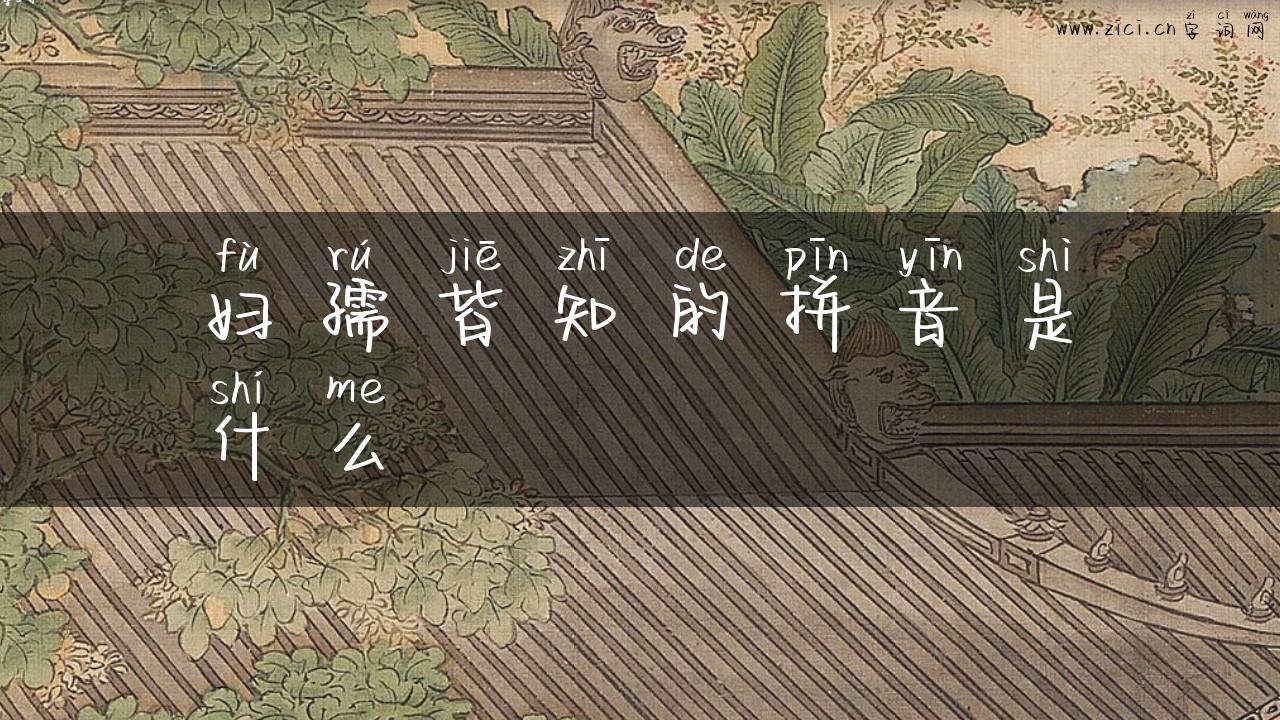 zì cí wǎng
www.zici.cn 字词网
fù rú jiē zhī de pīn yīn shì
妇孺皆知的拼音是
shí me
什么